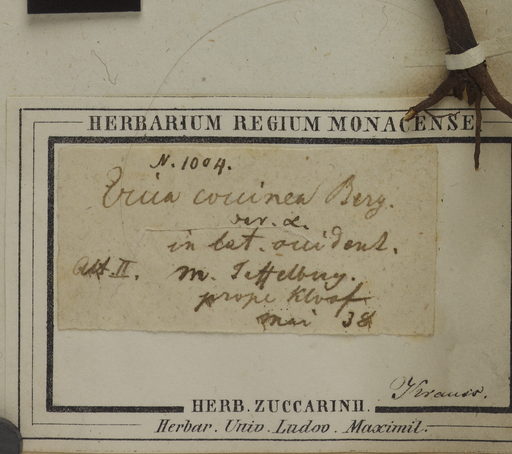 HERBARIUM REGIUM MONACENSE
N. 1004.
Erica coccinea Berg.
var. α.
in lat. occident.
Alt. II. m. Taffelberg.
prope Kloof
Mai 38
Krauss.
HERB. ZUCCARINII.
Herbar. Univ. Ludov. Maximil.